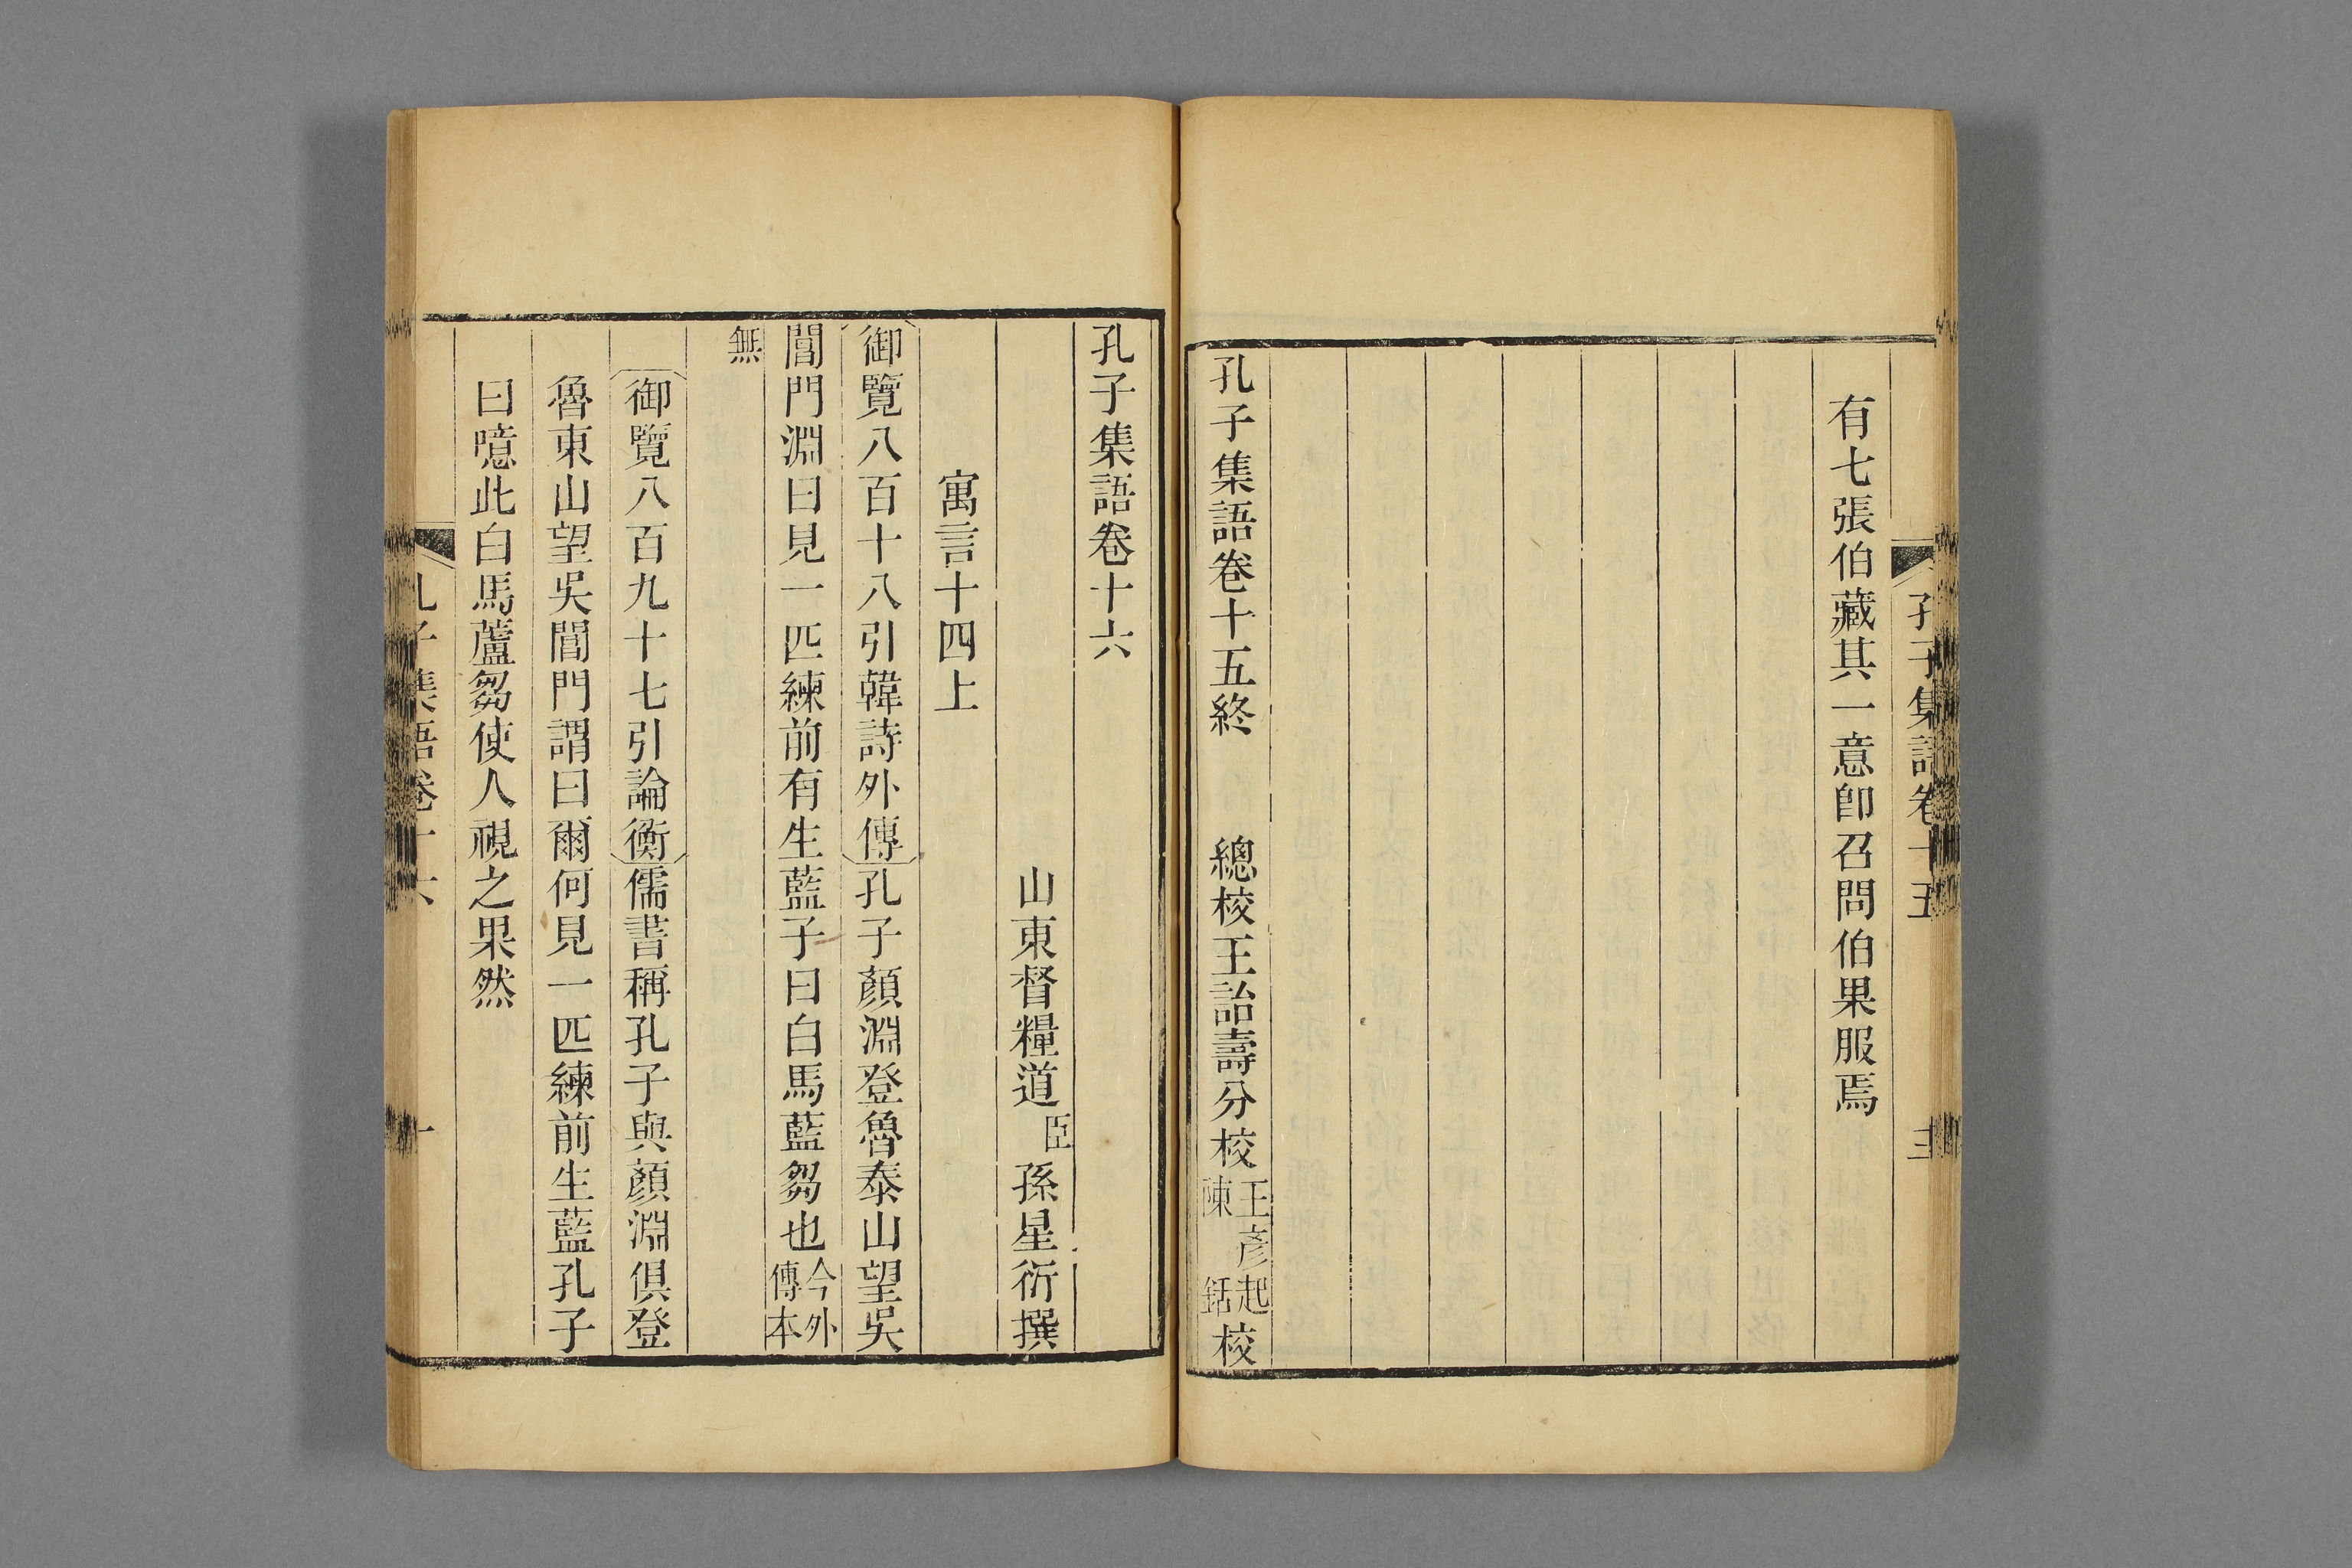 孔子集語卷十五
有七張伯藏其一意卽召問伯果服焉
孔子集語卷十五終 總校王詒壽分校王彥起陳𨧱校
孔子集語卷十六
山東督糧道臣孫星衍撰
寓言十四上
御覽八百十八引韓詩外傳孔子顏淵登魯泰山望吳
閶門淵曰見一匹練前有生藍子曰白馬藍芻也今外傳本
無
御覽八百九十七引論衡儒書稱孔子與顏淵俱登
魯東山望吳閶門謂曰爾何見一匹練前生藍孔子
曰噫此白馬蘆芻使人視之果然
孔子集語卷十六